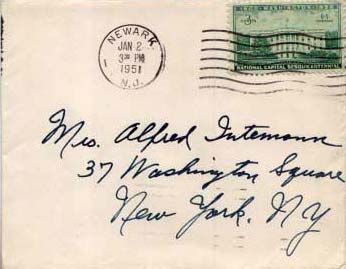 NEWARK
JAN 2
3 30 PM
1951
N.J.
1
WASHINGTON
3¢
NATIONAL CAPITAL SESQUICENTENNIAL
Mrs. Alfred Intemann
37 Washington Square
New York, NY